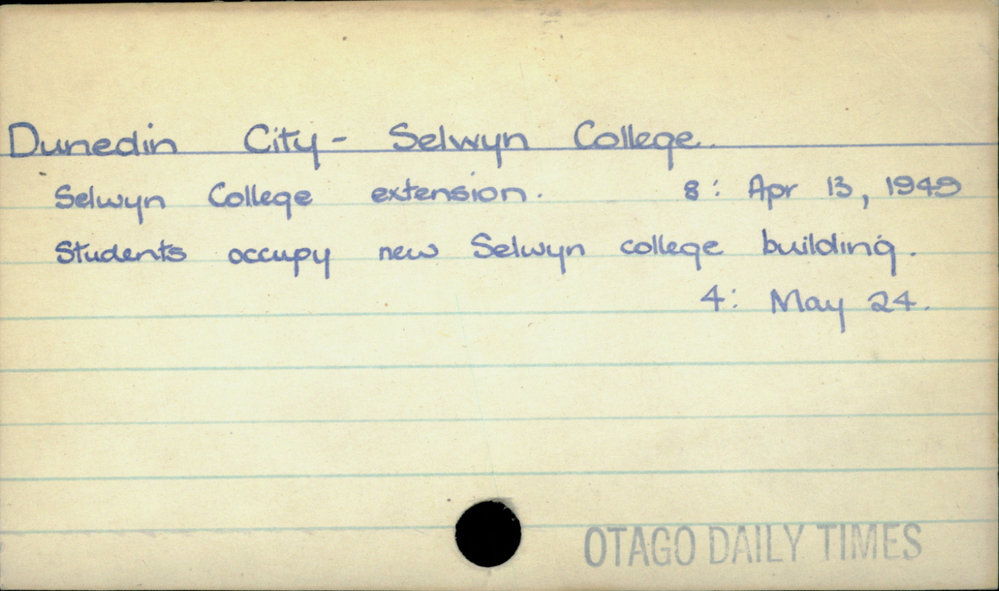 Dunedin City - Selwyn College.
Selwyn College extension. 8: Apr 13, 1949
Students occupy new Selwyn college building.
4: May 24.
OTAGO DAILY TIMES